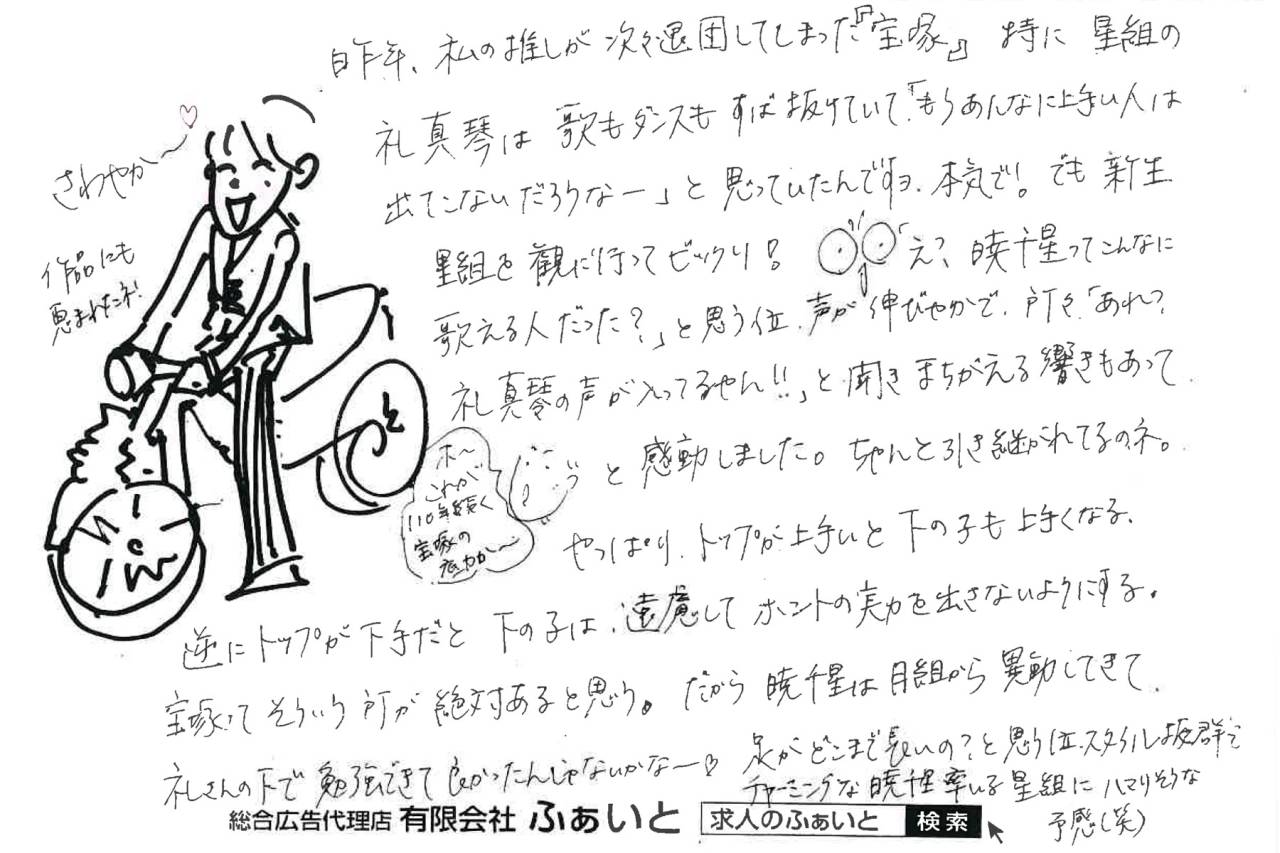 昨年、私の推しが次々退団してしまった『宝塚』 特に 星組の
礼真琴は 歌もダンスも ずば抜けていて、「もうあんなに上手い人は
出てこないだろうなー」と思っていたんですヨ、本気で!。でも 新生
星組を観に行ってビックリ! え?、暁千星ってこんなに
歌える人だった?」と思う位、声が伸びやかで、所々「あれ?
礼真琴の声が入ってるやん!!」と聞きまちがえる響きもあって
と 感動しました。ちゃんと引き継がれてるのネ。
やっぱり、トップが上手いと 下の子も上手くなる、
逆にトップが下手だと 下の子は、遠慮して ホントの実力を出さないようにする。
宝塚って そういう所が 絶対あると思う。だから 暁千星は月組から異動してきて、
礼さんの下で勉強できて良かったんじゃないかなー♡ 足がどこまで長いの?と思う位、スタイル抜群で
チャーミングな 暁千星率いる星組に ハマりそうな
予感(笑)
さわやか〜
作品にも
恵まれたネ!
ホ〜
これが
110年続く
宝塚の
底力か〜
総合広告代理店 有限会社 ふぁいと 求人のふぁいと 検索